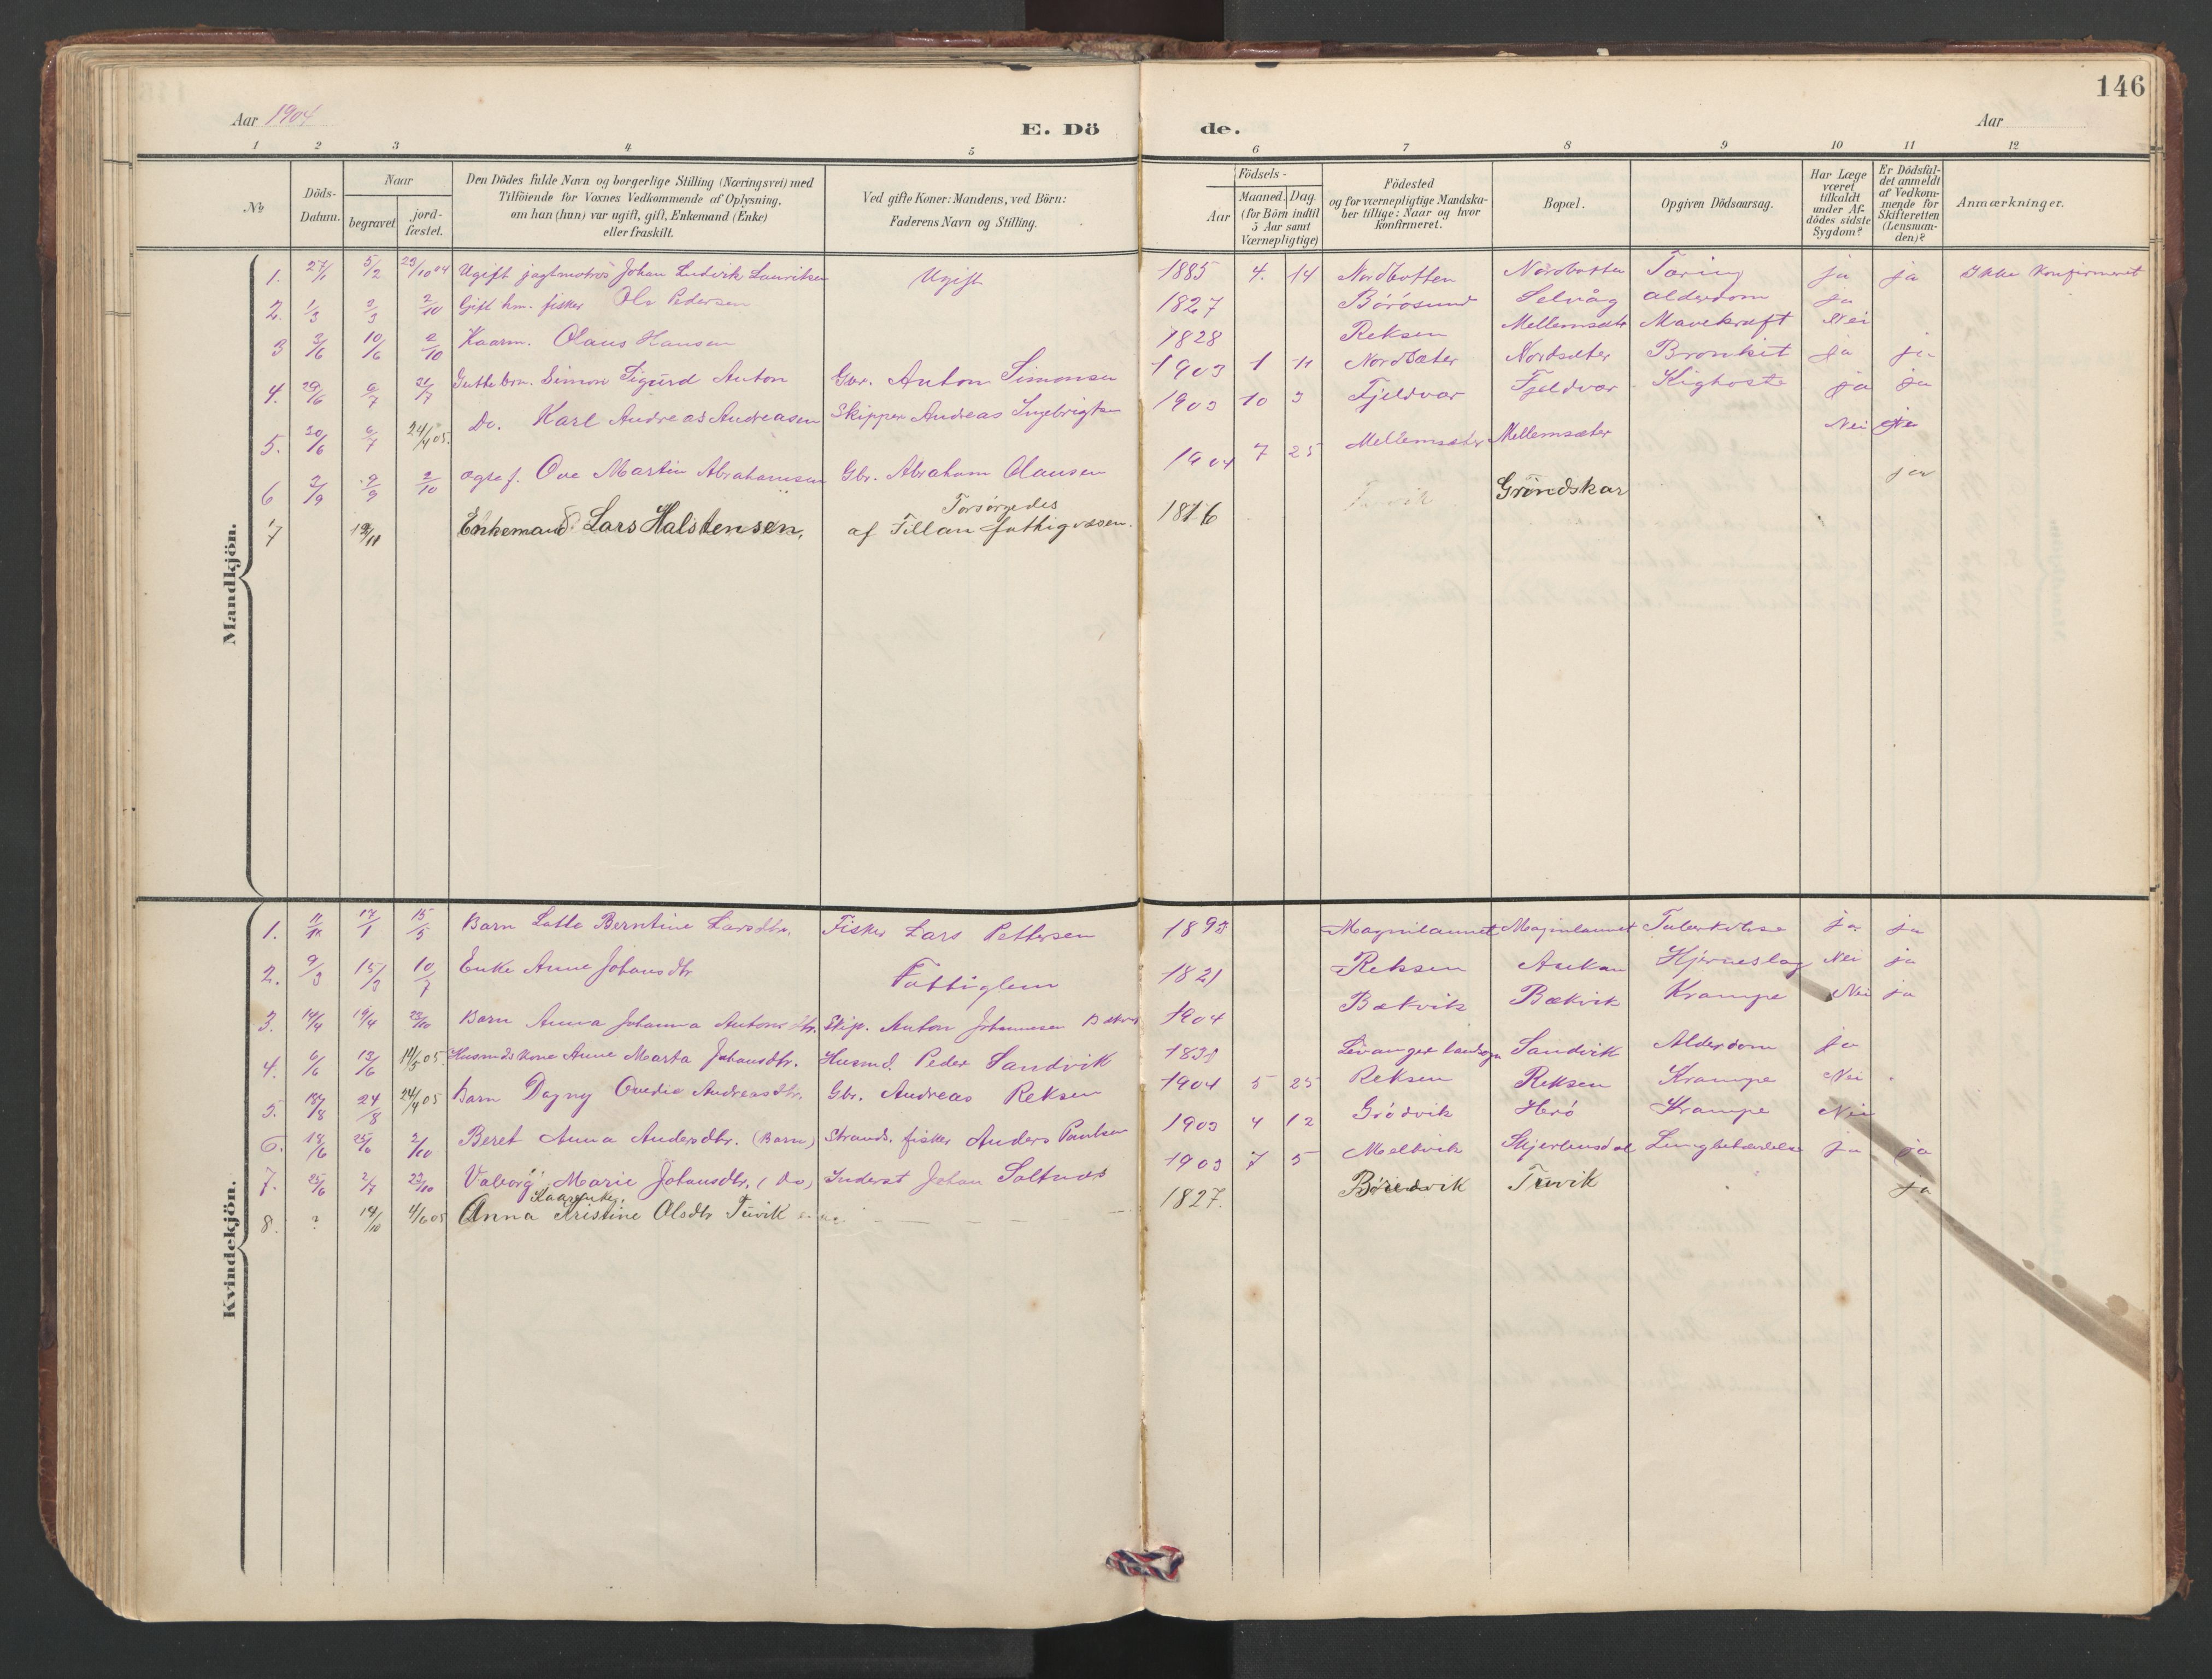 146
Aar 1904
E. Dö
de.
Aar
1 2 3 4 5 6 7 8 9 10 11 12
No
Döds-
Datum.
Naar
begravet
jord-
fæstet.
Den Dödes fulde Navn og borgerlige Stilling (Næringsvei) med
Tilföiende for Voxnes Vedkommende af Oplysning,
om han (hun) var ugift, gift, Enkemand (Enke)
eller fraskilt.
Ved gifte Koner: Mandens, ved Börn:
Faderens Navn og Stilling.
Födsels-
Aar
Maaned. Dag.
(for Börn indtil
5 Aar samt
Værnepligtige)
Födested
og for værnepligtige Mandska-
ber tillige: Naar og hvor
konfirmeret.
Bopæl.
Opgiven Dödsaarsag.
Har Læge
været
tilkaldt
under Af-
dödes sidste
Sygdom?
Er Dödsfal-
det anmeldt
af Vedkom-
mende for
Skifteretten
(Lensman-
den)?
Anmærkninger.
Mandkjön.
1. 27/1 5/2 23/10 04 Ugift jagtmatros Johan Ludvik Lauritsen Ugift 1885 4. 14 Nordbotten Nordbotten Tæring ja ja Ikke Konfirmeret
2. 1/3 2/10 Gift hm. fisker Ole Pedersen 1827 Börösund Selvåg alderdom ja
3 3/6 10/6 2/10 Kaarm. Olaus Hansen 1828 Reksen Mellemsæter Mavekræft Nei
4. 29/6 6/7 21/7 Guttebrn. Simon Sigurd Anton Gbr. Anton Simonsen 1903 1 11 Nordsæter Nordsæter Bronkit ja ja
5. 30/6 6/7 24/4 05. Do. Karl Andreas Andreasen Skipper Andreas Ingebrigtsen 1903 10 3 Fjeldvær Fjeldvær Kighoste ja ja
6 2/9 9/9 2/10 Ove Martin Abrahamsen Gbr. Abraham Olausen 1904 7 25 Mellemsæter Mellemsæter Nei
7 19/11 Enkemand Lars Halstensen, Forsørgedes
af Fillan fattigvæsen. 1816 Gröndskar ja
Kvindekjön.
1. 17/1 15/5 Barn Lotte Berntine Larsdtr. Fisker Lars Pettersen 1893 Magnilaunet Magnilaunet Tuberkulose ja ja
2. 9/3 15/3 10/7 Enke Anne Johansdtr Fattiglem 1821 Reksen Aukan Hjerneslag Nei ja
3. 14/4 19/4 23/10 Barn Anna Johanna Antonsdtr. Skip. Anton Johannesen Bækvik 1904 Bækvik Bækvik Krampe Nei ja
4. 6/6 13/6 14/5 05. Husmdskone Anne Marta Johansdtr. Husmd. Peder Sandvik 1831 Levanger landsogn Sandvik Alderdom ja
5. 18/8 24/8 24/4 05 Barn Dagny Ovedie Andreasdtr. Gbr. Andreas Reksen 1904 5 25 Reksen Reksen Krampe Nei
6. 18/6 25/6 2/10 Beret Anna Andersdtr. (Barn) Strands. fisker Anders Paulsen 1903 4 12 Grödvik Herö Krampe Nei
7. 25/6 2/7 23/10 Valborg Marie Johansdtr. (Do) Inderst Johan Saltnes 1903 7 5 Meltvik Skjerbusdal Lungbetændelse ja ja
8. ? 14/10 4/6 05 Anna Kristine Olsdtr Tuvik Kaarenke. 1827. Tuvik ja